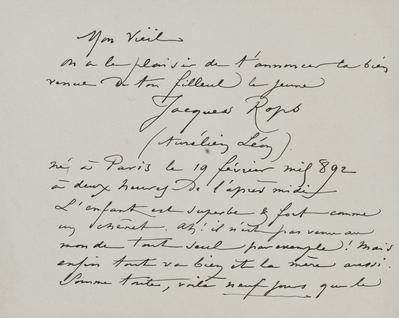 Mon Vieil
on a le plaisir de t'annoncer la bien
venue de ton filleul le jeune
Jacques Rops
(Aurélien Léon)
né à Paris le 19 février mil 892
à deux heures de l'après midi
L'enfant est superbe & fort comme
un chenet. Ah! il n'est pas venu au
monde tout seul par exemple! Mais
enfin tout va bien et la mère aussi.
Somme toute, voilà neuf jours que le